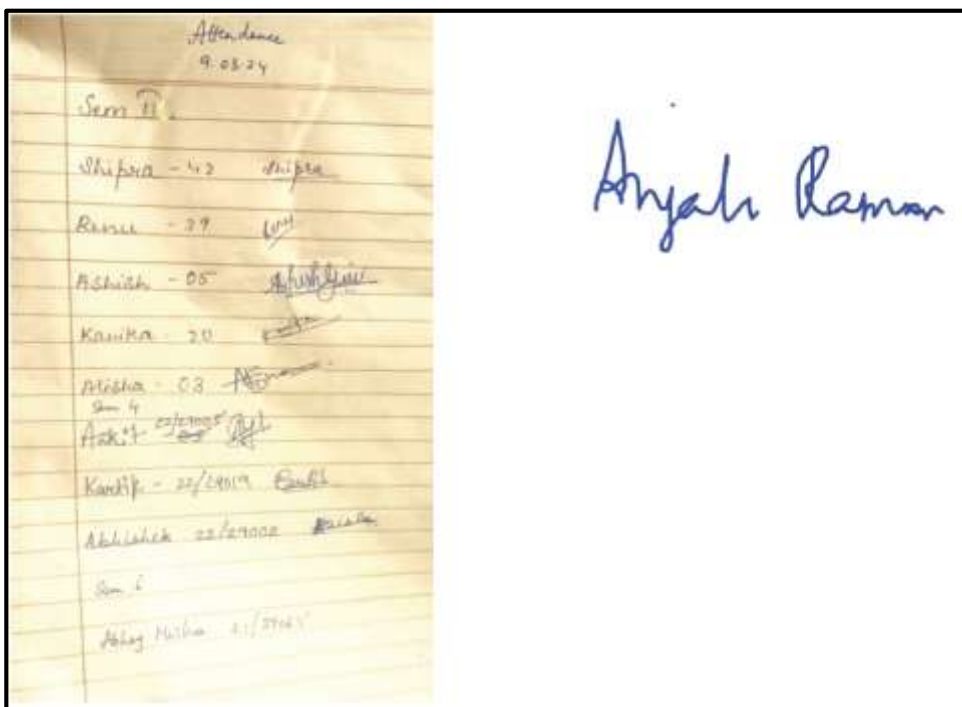 Attendance
9.03.24
Sem II.
Shipra - 42 Shipra
Renu - 29
Ashish - 05
Kanika - 20
Alisha - 03
Sem 4
Ankit 22/29005
Kartik - 22/29019 Kartik
Abhishek 22/29002
Sem 6
Abhay Mishra
Anjali Raman